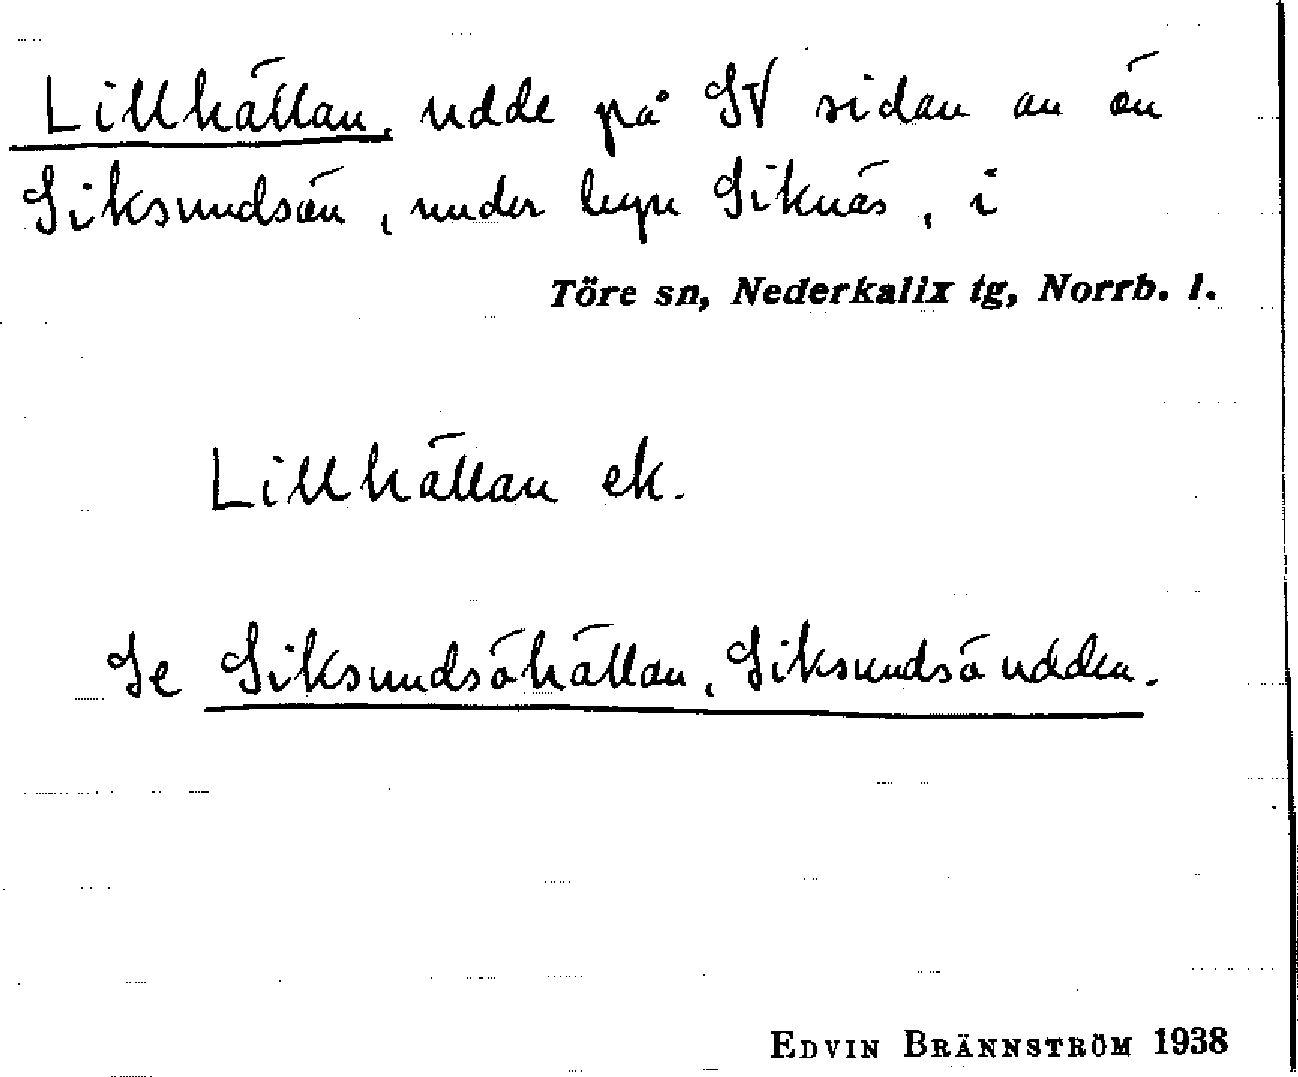 Lillhällan, udde på SV sidan av ön
Siksundsön, under byn Siknäs, i
Töre sn, Nederkalix tg, Norrb. l.
Lillhällan ek.
Se Siksundsöhällan, Siksundsöudden.
EDVIN BRÄNNSTRÖM 1938